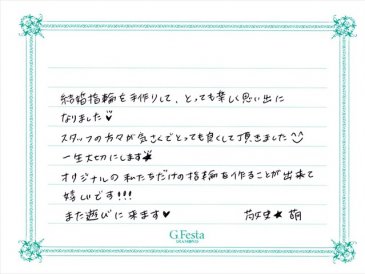 結婚指輪を手作りして、とっても楽しく思い出に
なりました♥
スタッフの方々が気さくでとっても良くして頂きました
一生大切にします★
オリジナルの私たちだけの指輪を作ることが出来て
嬉しいです!!!
また遊びに来ます♥
★ 萌
G.Festa